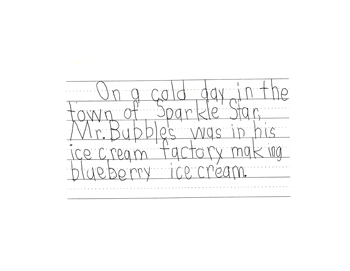 On a cold day in the
town of Sparkle Star,
Mr. Bubbles was in his
ice cream factory making
blueberry ice cream.